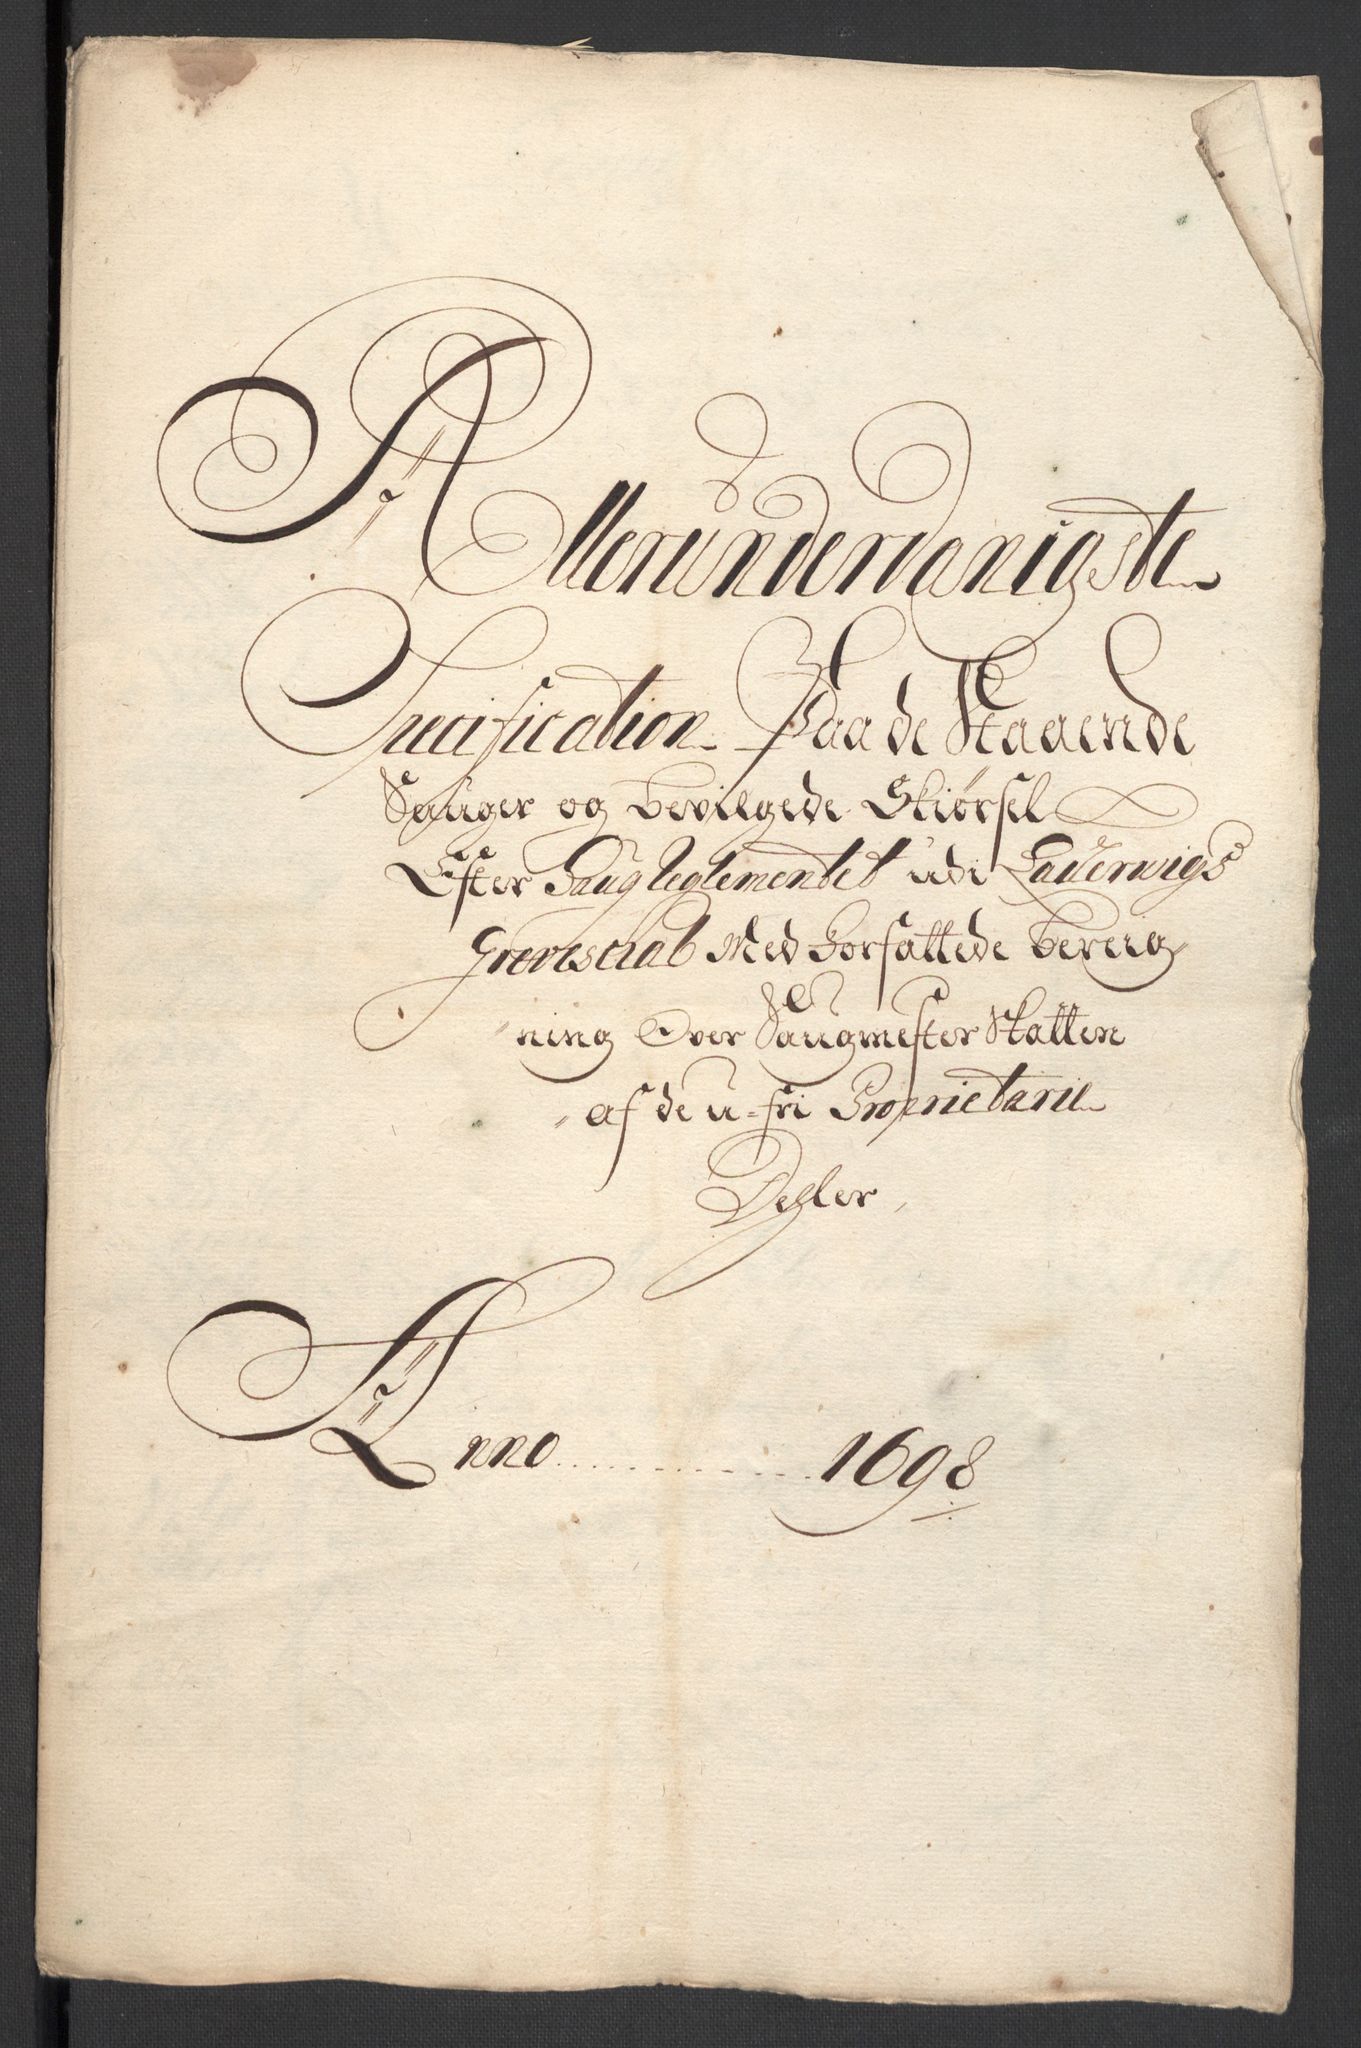 Allerunderdanigste
Specification Paa de Staaende
Sauger og bevilgede Skiørsel
Efter Saug Reglementet udi Laurwigs
Grevescab Med Forfattede bereig-
ning Over Saugmester Skatten
af de u-fri Proprietarie
Deeler
Anno 1698